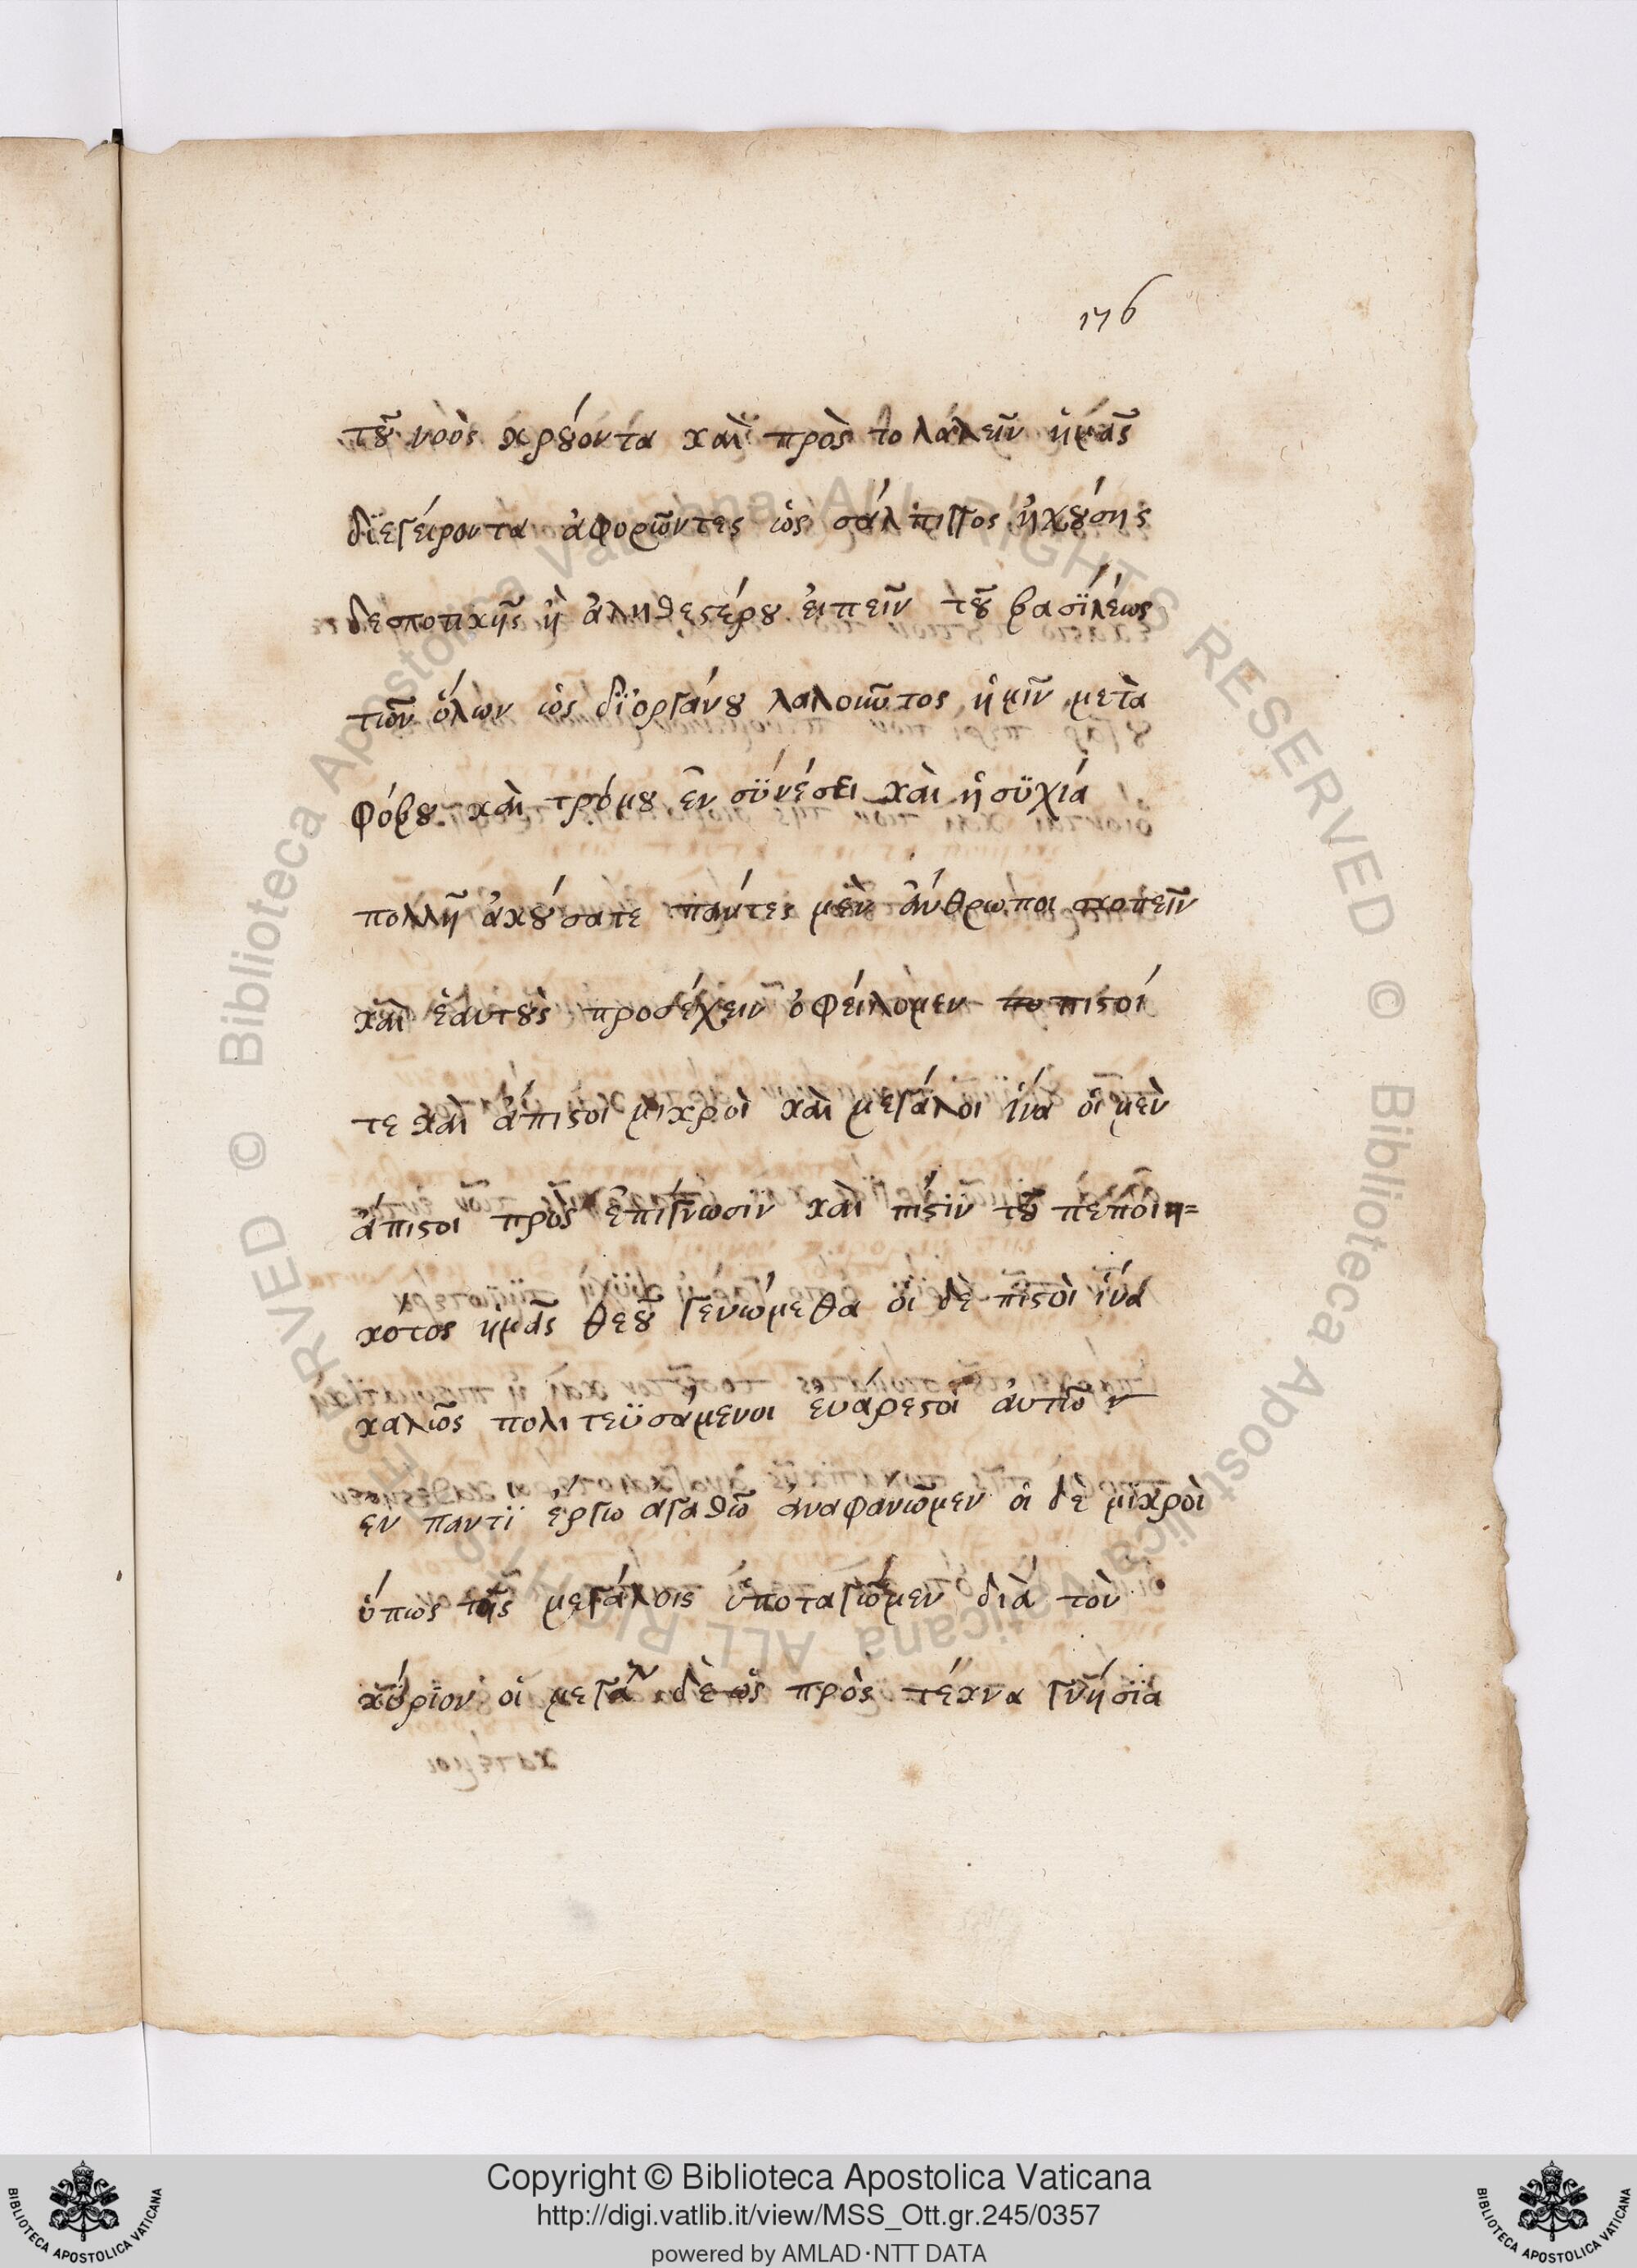 176
τοῦ νοὸς κρούοντα καὶ πρὸς το λαλεῖν ἡμᾶς
διεγείροντα ἀφορῶντες ὡς σάλπιγγος ἠχούσης
δεσποτικῆς ἢ ἀληθεστέρου εἰπεῖν τοῦ βασϊλέως
τῶν ὅλων ὡς δϊοργάνου λαλοῦντος ἡμῖν μετὰ
φόβου καὶ τρόμου ἐν σϋνέσει καὶ ἡσϋχία
πολλῆ ἀκούσατε πάντες μὲν ἄνθρωποι σκοπεῖν
καὶ ἑαυτοὺς προσέχειν ὀφείλομεν πο πιστοί
τε καὶ ἄπιστοι μικροὶ καὶ μεγάλοι ἵνα οἱ μὲν
ἄπιστοι πρὸς ἐπίγνωσϊν καὶ πίστϊν τοῦ πεποιη=
κοτος ἡμᾶς θεοῦ γενώμεθα οἱ δὲ πιστοὶ ἵνα
καλῶς πολιτεϋσάμενοι εὐάρεστοι ἀυτῶ
εν παντϊ ἔργω αγαθῶ ἀναφανῶμεν οἱ δὲ μϊκροὶ
ὅπως τοῖς μεγάλοις ὑποταγῶμεν διὰ τὸν
κύρϊον οἱ μεγάλ δὲ ὡς πρὸς τέκνα γνήσϊα
Copyright © Biblioteca Apostolica Vaticana
http://digi.vatlib.it/view/MSS_Ott.gr.245/0357
powered by AMLAD·NTT DATA
BIBLIOTECA APOSTOLICA VATICANA
BIBLIOTECA APOSTOLICA VATICANA